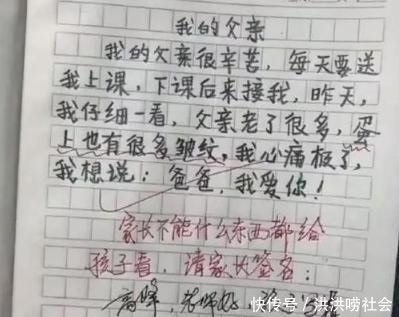 我的父亲
我的父亲很辛苦，每天要送
我上课，下课后来接我，昨天，
我仔细一看，父亲老了很多，蛋
上也有很多皱纹，我心痛极了，
我想说：爸爸，我爱你！
家长不能什么东西都给
孩子看，请家长签名：
老师好
快传号/洪洪唠社会